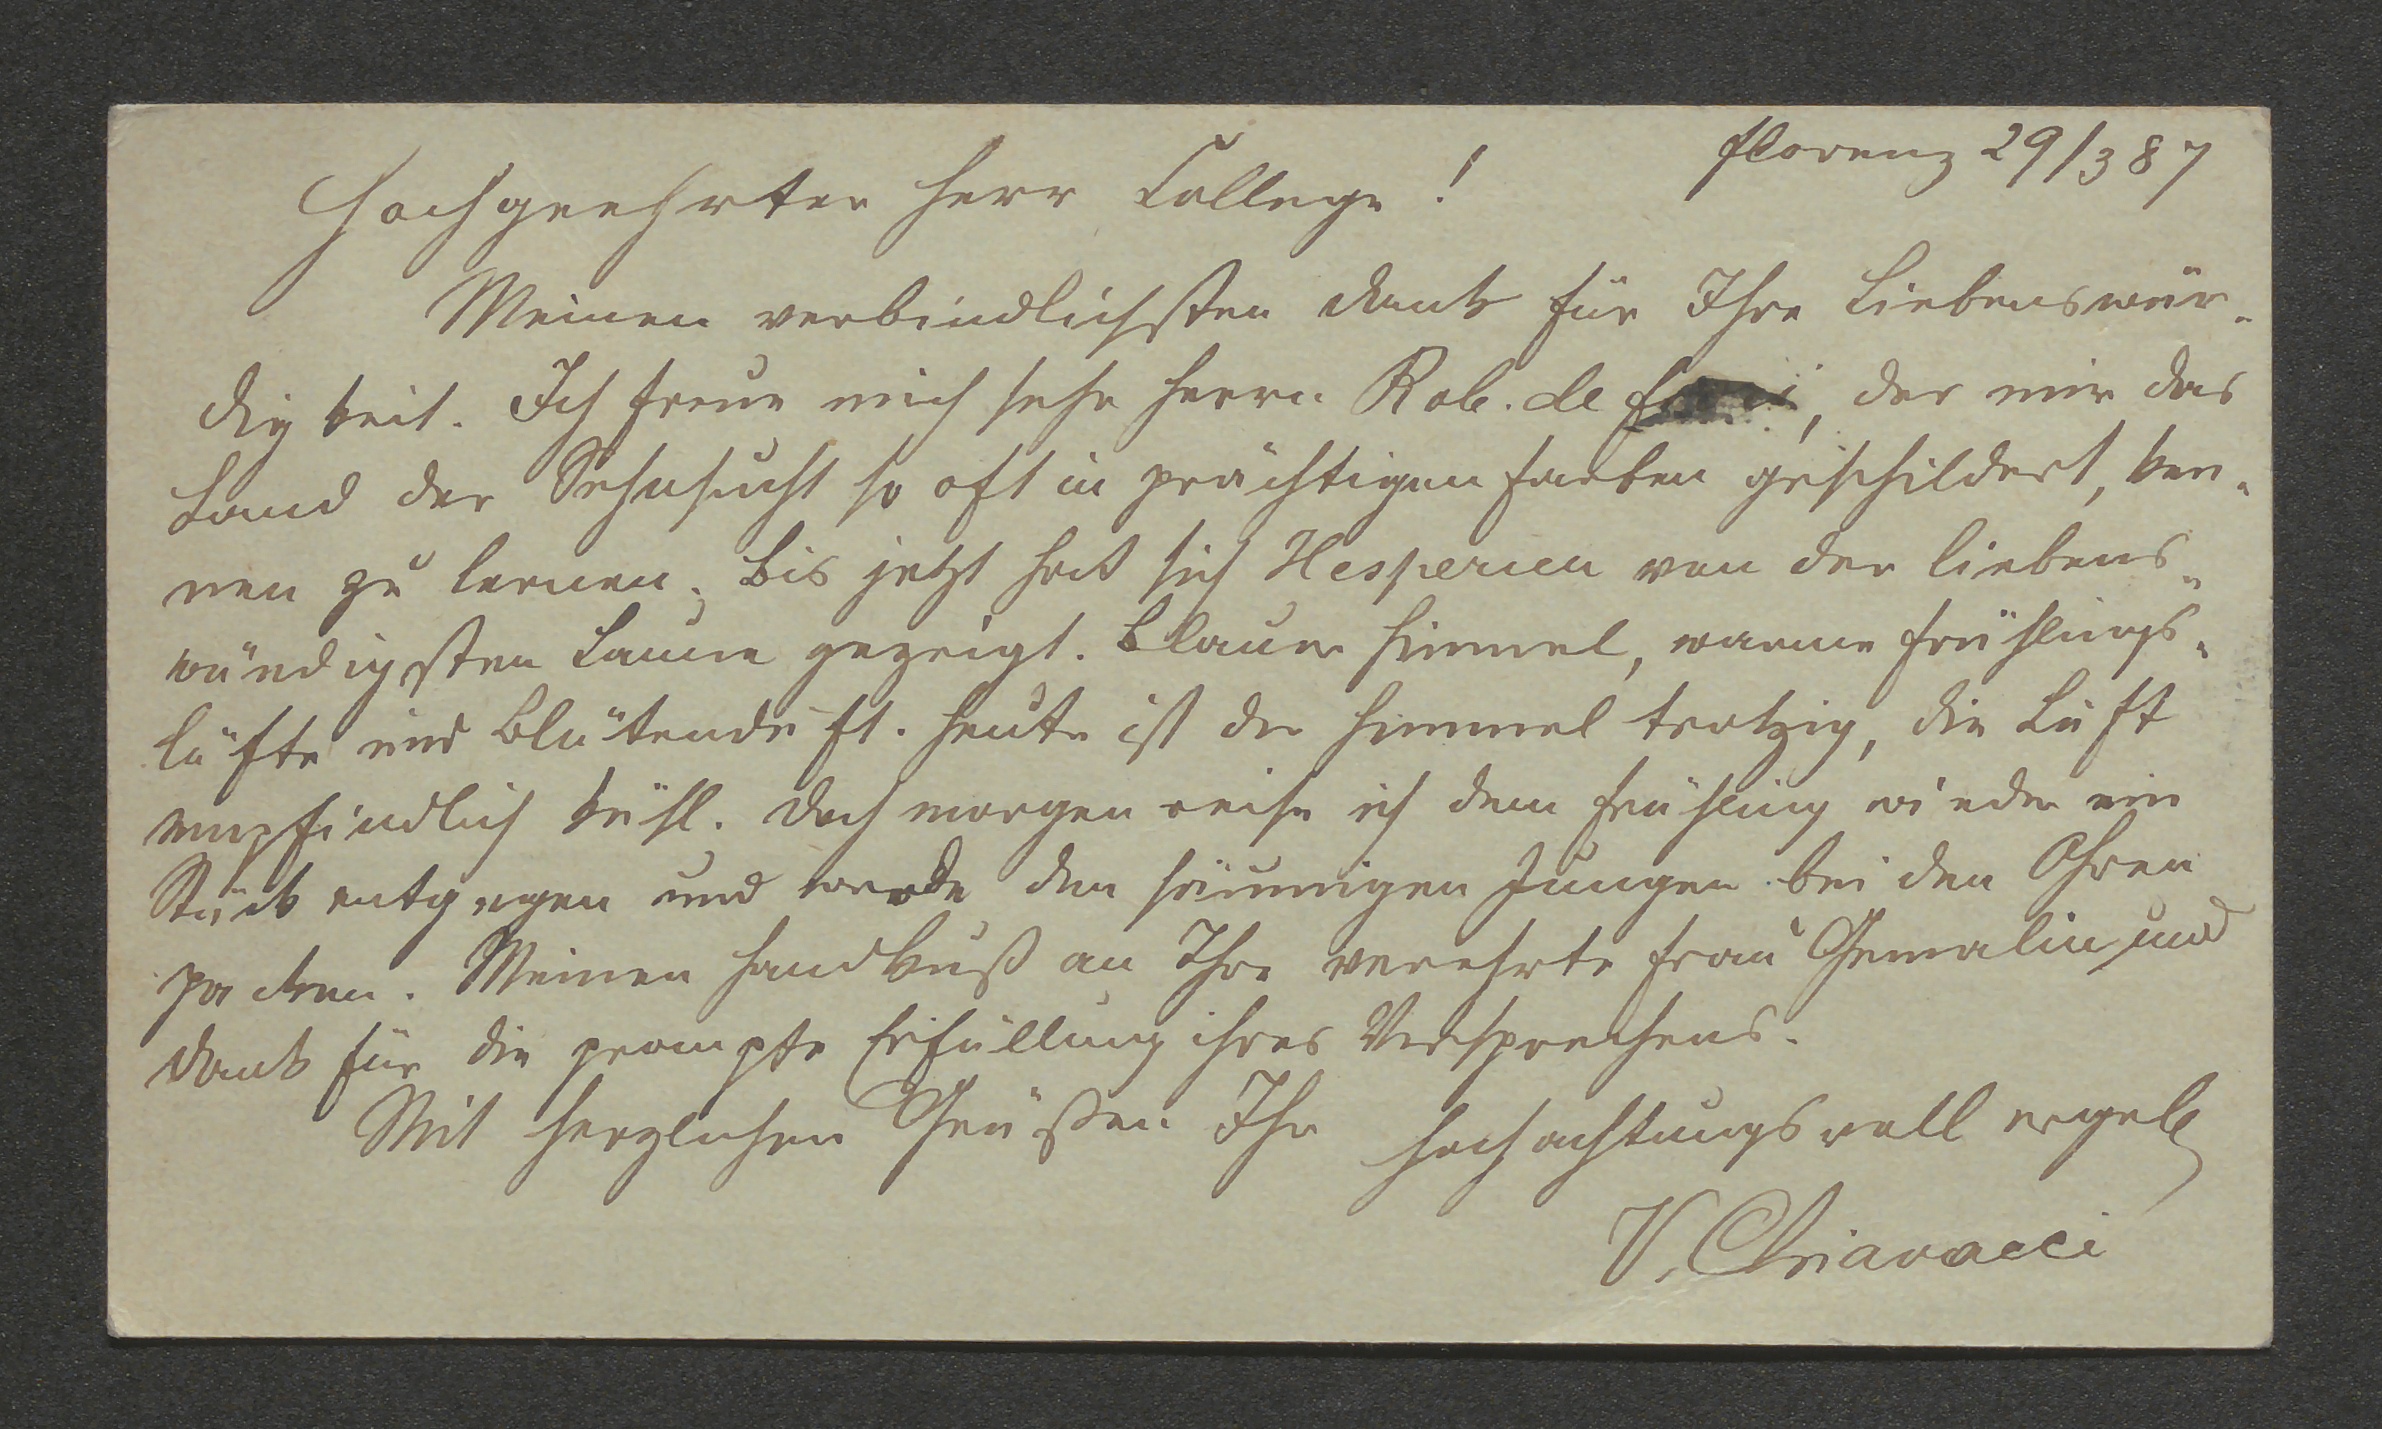 Florenz 29/3 87
Hochgeehrter Herr College!
Meinen verbindlichsten Dank für Ihre Liebenswür-
digkeit. Ich freue mich sehr Herrn Rob. de , der mir das
Land der Sehnsucht so oft in prächtigen Farben geschildert, ken-
nen zu lernen. Bis jetzt hat sich Hesperien von der liebens-
würdigsten Laune gezeigt. Blauer Himmel, warme Frühlings-
lüfte und Blütenduft. Heute ist der Himmel trotzig, die Luft
empfindlich kühl. Doch morgen reise ich dem Frühling wieder ein
Stück entgegen und werde den säumigen Jungen bei den Ohren
packen. Meinen Handkuß an Ihre verehrte Frau Gemalin und
Dank für die prompte Erfüllung ihres Versprechens.
Mit herzlichen Grüßen Ihr hochachtungsvoll ergeb
V. Chiavacci